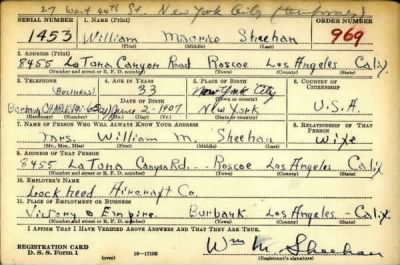 27 West 44th St. New York City (temporary)
SERIAL NUMBER 1. NAME (Print) ORDER NUMBER
1453 William Maurice Sheehan 969
(First) (Middle) (Last)
2. ADDRESS (Print)
8455 La Tuna Canyon Road Roscoe Los Angeles Calif
(Number and street or R. F. D. number) (Town) (County) (State)
3. TELEPHONE 4. AGE IN YEARS 5. PLACE OF BIRTH 6. COUNTRY OF CITIZENSHIP
(Business) 33 New York City
DATE OF BIRTH (Town or county)
2 - 1907 New York U.S.A.
(Exchange) (Number) (Mo.) (Day) (Yr.) (State or country)
7. NAME OF PERSON WHO WILL ALWAYS KNOW YOUR ADDRESS 8. RELATIONSHIP OF THAT PERSON
Mrs. William M. Sheehan Wife
(Mr., Mrs., Miss) (First) (Middle) (Last)
9. ADDRESS OF THAT PERSON
8455 La Tuna Canyon Rd. - Roscoe Los Angeles Calif
(Number and street or R. F. D. number) (Town) (County) (State)
10. EMPLOYER'S NAME
Lockheed Aircraft Co.
11. PLACE OF EMPLOYMENT OR BUSINESS
Victory & Empire Burbank Los Angeles - Calif.
(Number and street or R. F. D. number) (Town) (County) (State)
I AFFIRM THAT I HAVE VERIFIED ABOVE ANSWERS AND THAT THEY ARE TRUE.
REGISTRATION CARD
D. S. S. Form 1 (over) 16-17105 Wm M. Sheehan
(Registrant's signature)